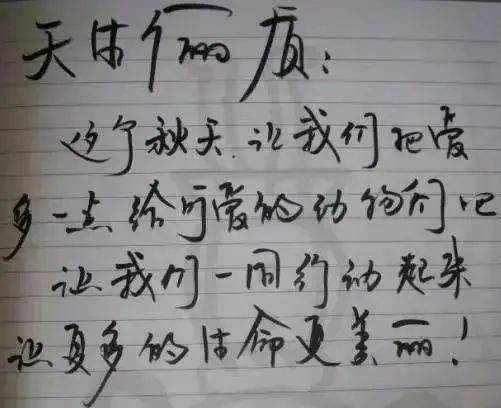 天体俪质：
这个秋天让我们把爱
多一点给可爱的动物们吧
让我们一同行动起来
让更多的体命更美丽！